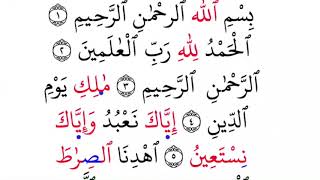 بِسْمِ ٱللَّهِ ٱلرَّحْمَٰنِ ٱلرَّحِيمِ ١
ٱلْحَمْدُ لِلَّهِ رَبِّ ٱلْعَٰلَمِينَ ٢
ٱلرَّحْمَٰنِ ٱلرَّحِيمِ ٣ مَٰلِكِ يَوْمِ
ٱلدِّينِ ٤ إِيَّاكَ نَعْبُدُ وَإِيَّاكَ
نِسْتَعِينُ ٥ ٱهْدِنَا ٱلصِّرَٰطَ